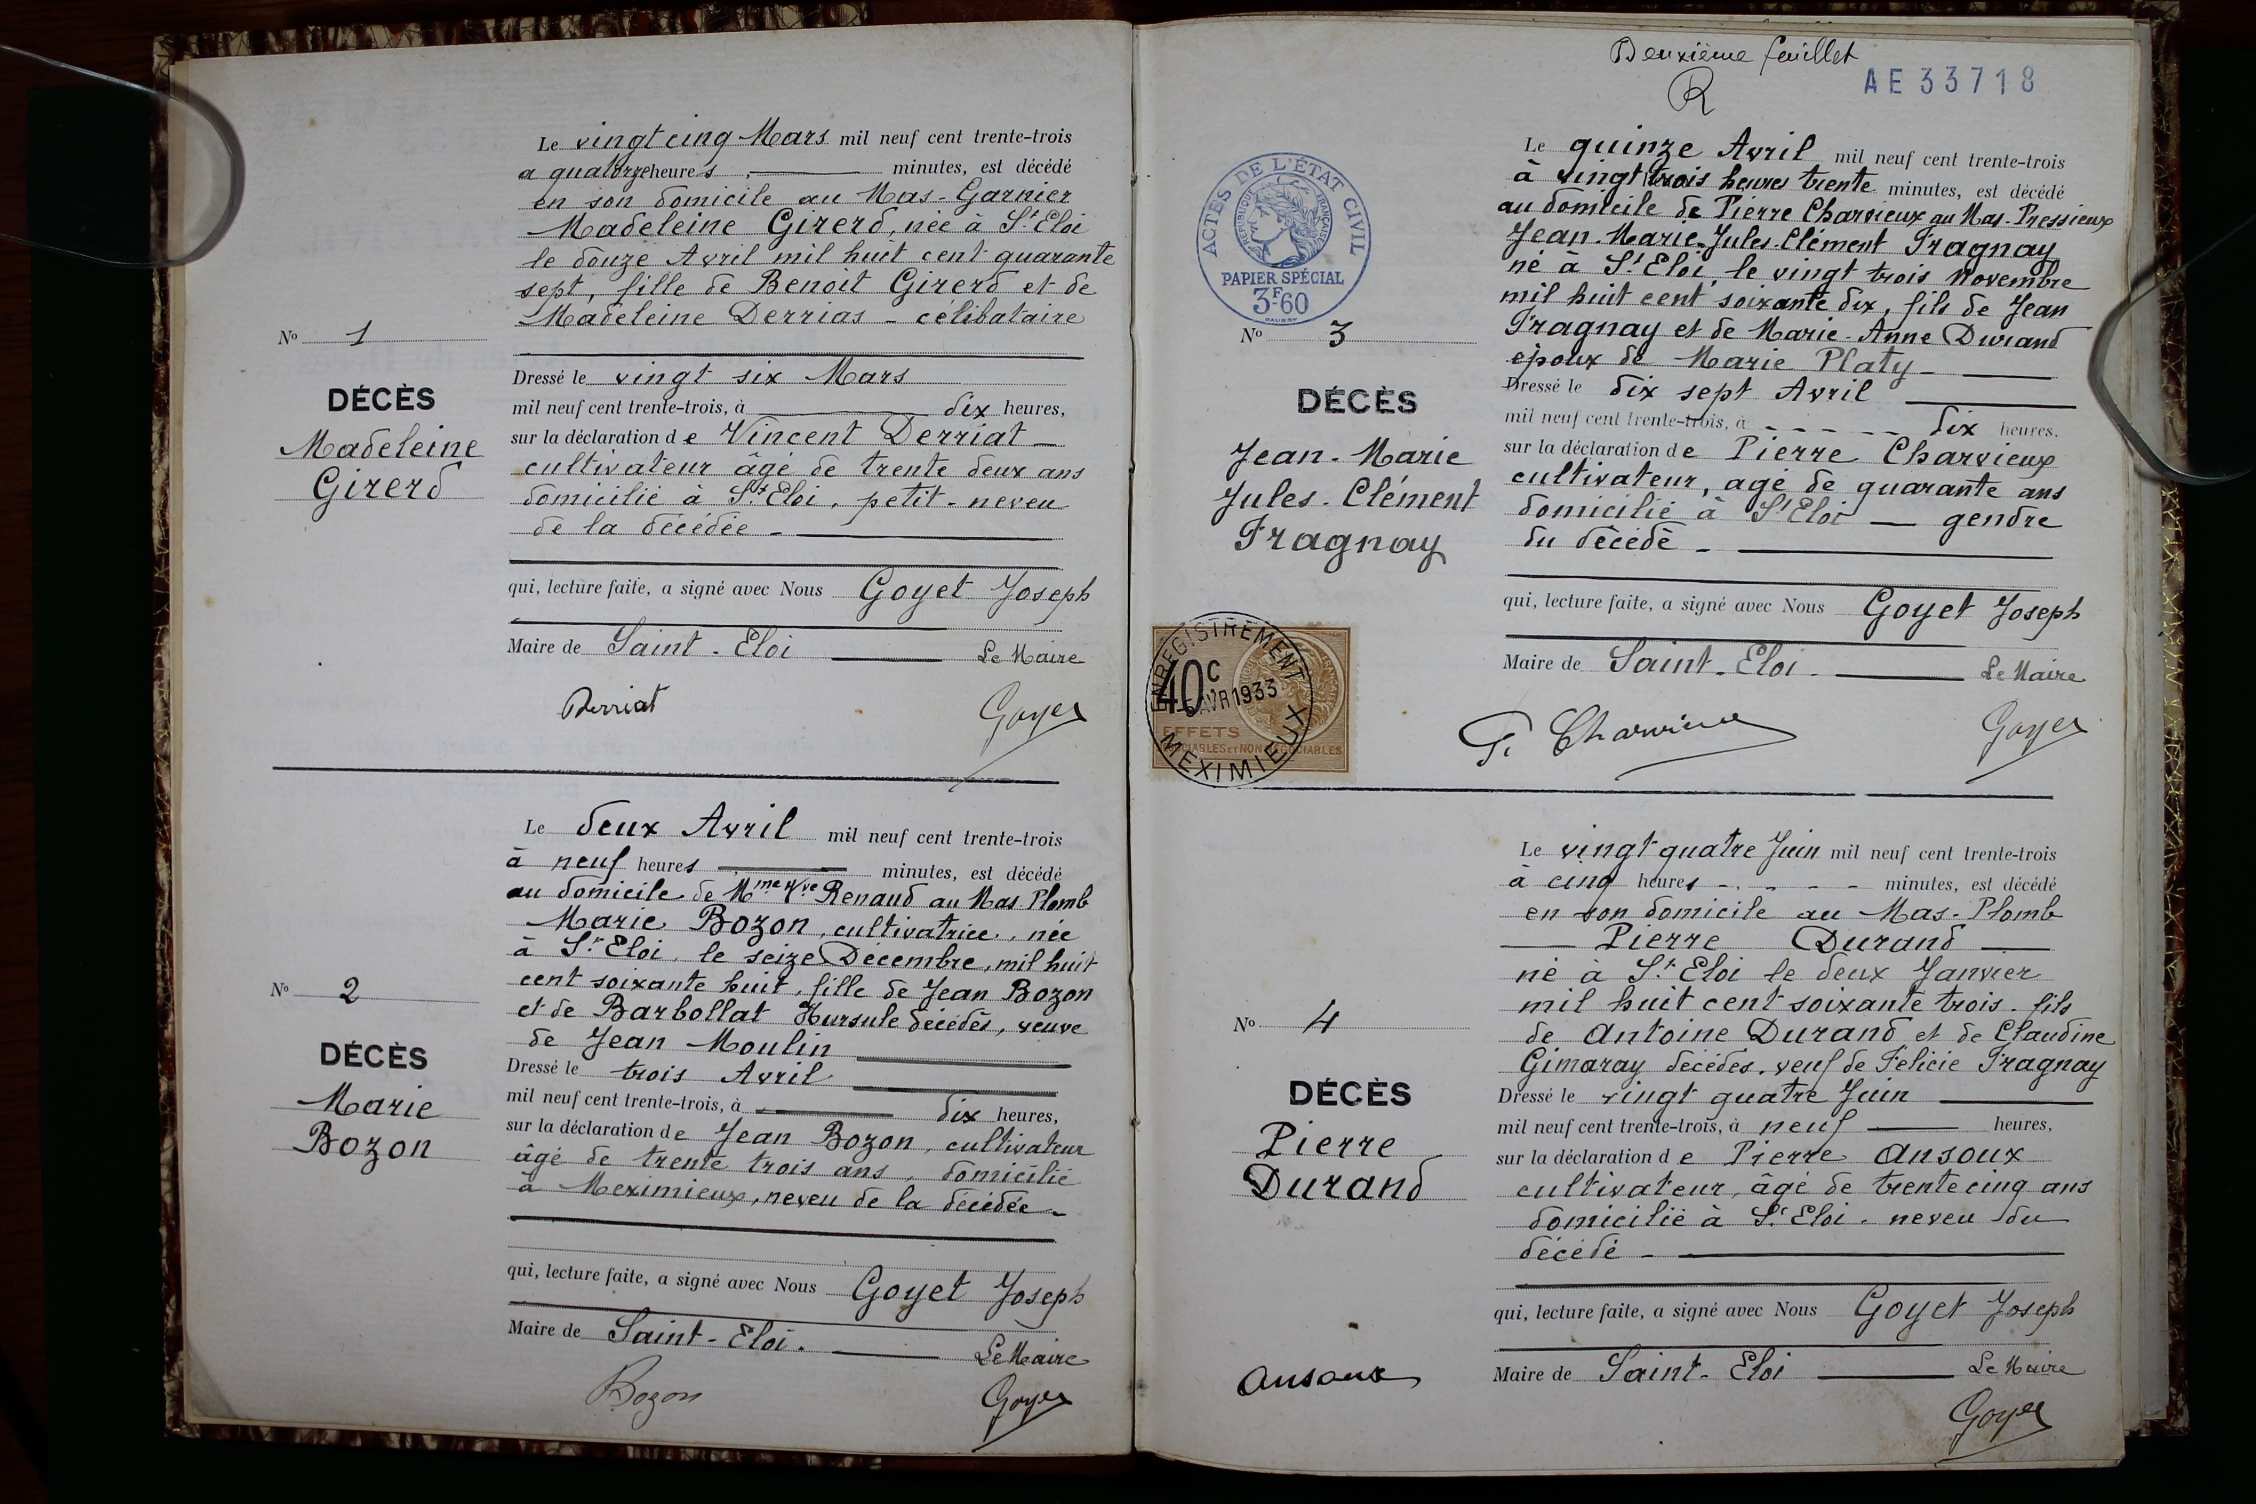 Le vingt cinq Mars mil neuf cent trente-trois
a quatorze heures minutes, est décédé
en son domicile au Mas-Garnier
Madeleine Girerd, née à St Eloi
le douze Avril mil huit cent quarante
sept, fille de Benoit Girerd et de
Madeleine Derrias - célibataire
No 1
DÉCÈS
Madeleine
Girerd
Dressé le vingt six Mars
mil neuf cent trente-trois, à dix heures,
sur la déclaration de Vincent Derriat
cultivateur âgé de trente deux ans
domicilié à St Eloi, petit-neveu
de la décédée -
qui, lecture faite, a signé avec Nous Goyet Joseph
Maire de Saint-Eloi Le Maire
Derriat Goyet
Le deux Avril mil neuf cent trente-trois
à neuf heures minutes, est décédé
au domicile de Mme Vve Renaud au Mas Plomb
Marie Bozon, cultivatrice, née
à St Eloi, le seize Décembre, mil huit
cent soixante huit, fille de Jean Bozon
et de Barbollat Hursule décédés, veuve
de Jean Moulin
No 2
DÉCÈS
Marie
Bozon
Dressé le trois Avril
mil neuf cent trente-trois, à dix heures,
sur la déclaration de Jean Bozon, cultivateur
âgé de trente trois ans, domicilié
à Meximieux, neveu de la décédée -
qui, lecture faite, a signé avec Nous Goyet Joseph
Maire de Saint-Eloi. Le Maire
Bozon Goyet
Deuxième feuillet
R
AE 33718
ACTES DE L'ÉTAT CIVIL
RÉPUBLIQUE FRANÇAISE
PAPIER SPÉCIAL
3F60
Le quinze Avril mil neuf cent trente-trois
à vingt trois heures trente minutes, est décédé
au domicile de Pierre Charvieux au Mas-Pressieux
Jean-Marie-Jules-Clément Fragnay
né à St Eloi, le vingt trois Novembre
mil huit cent soixante dix, fils de Jean
Fragnay et de Marie-Anne Durand
époux de Marie Platy -
No 3
DÉCÈS
Jean-Marie
Jules-Clément
Fragnay
Dressé le dix sept Avril
mil neuf cent trente-trois, à dix heures.
sur la déclaration de Pierre Charvieux
cultivateur, agé de quarante ans
domicilié à St Eloi - gendre
du décédé -
qui, lecture faite, a signé avec Nous Goyet Joseph
Maire de Saint-Eloi. Le Maire
Goyet
ENREGISTREMENT
40c
5 AVR 1933
EFFETS
NÉGOCIABLES ET NON NÉGOCIABLES
MEXIMIEUX
Le vingt quatre Juin mil neuf cent trente-trois
à cinq heures minutes, est décédé
en son domicile au Mas-Plomb
Pierre Durand
né à St Eloi le deux Janvier
mil huit cent soixante trois. fils
de Antoine Durand et de Claudine
Gimaray décédés, veuf de Félicie Fragnay
No 4
DÉCÈS
Pierre
Durand
Dressé le vingt quatre Juin
mil neuf cent trente-trois, à neuf heures,
sur la déclaration de Pierre Ansoux
cultivateur, âgé de trente cinq ans
domicilié à St Eloi. neveu du
décédé -
qui, lecture faite, a signé avec Nous Goyet Joseph
Maire de Saint-Eloi Le Maire
Ansoux Goyet